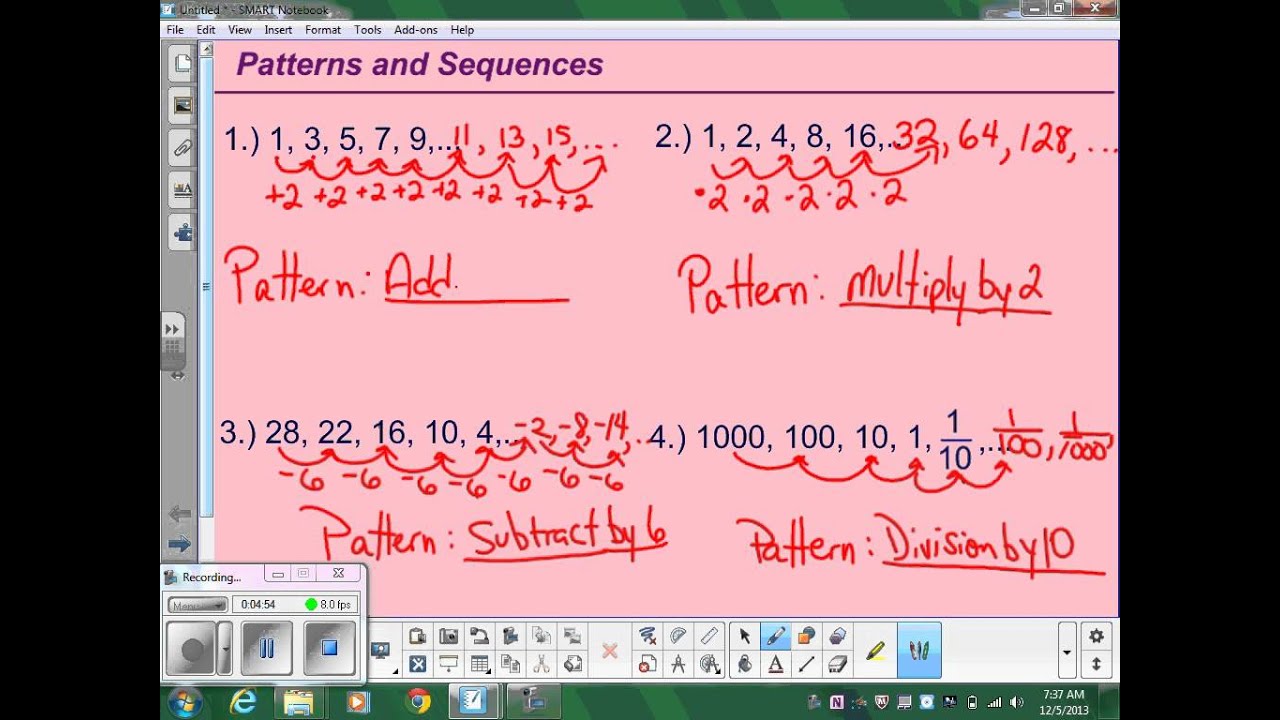 Untitled * - SMART Notebook
File Edit View Insert Format Tools Add-ons Help
Patterns and Sequences
1.) 1, 3, 5, 7, 9,... 11, 13, 15, ...
+2 +2 +2 +2 +2 +2 +2 +2
Pattern: Add.
2.) 1, 2, 4, 8, 16,.. 32, 64, 128, ...
·2 ·2 ·2 ·2 ·2
Pattern: multiply by 2
3.) 28, 22, 16, 10, 4,.. -2, -8, -14, ..
-6 -6 -6 -6 -6 -6 -6
Pattern: Subtract by 6
4.) 1000, 100, 10, 1, 1/10 ,... 1/100, 1/1000,
Pattern: Division by 10
Recording...
Menu
0:04:54 8.0 fps
7:37 AM
12/5/2013